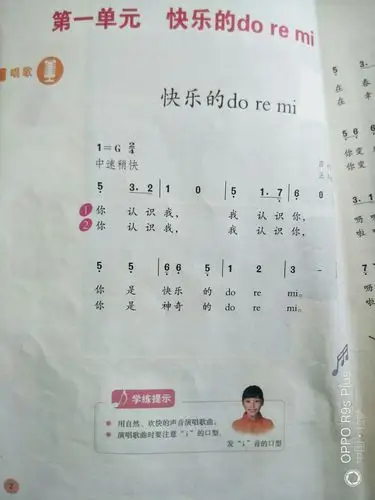 第一单元 快乐的do re mi
唱歌
快乐的do re mi
1=G 2/4
中速稍快
5 3. 2 | 1 0 | 5 1. 7 | 6 0
1 你 认 识 我, 我 认 识 你,
2 你 认 识 我, 我 认 识 你,
5 5 | 6 6 5 | 1 2 | 3 -
你 是 快 乐 的 do re mi。
你 是 神 奇 的 do re mi。
学练提示
用自然、欢快的声音演唱歌曲。
演唱歌曲时要注意“i”的口型。
发“i”音的口型
2
5 3.
在 春
在 幸
5 6 6
你 变
你 变
3. 1
OPPO R9s Plus